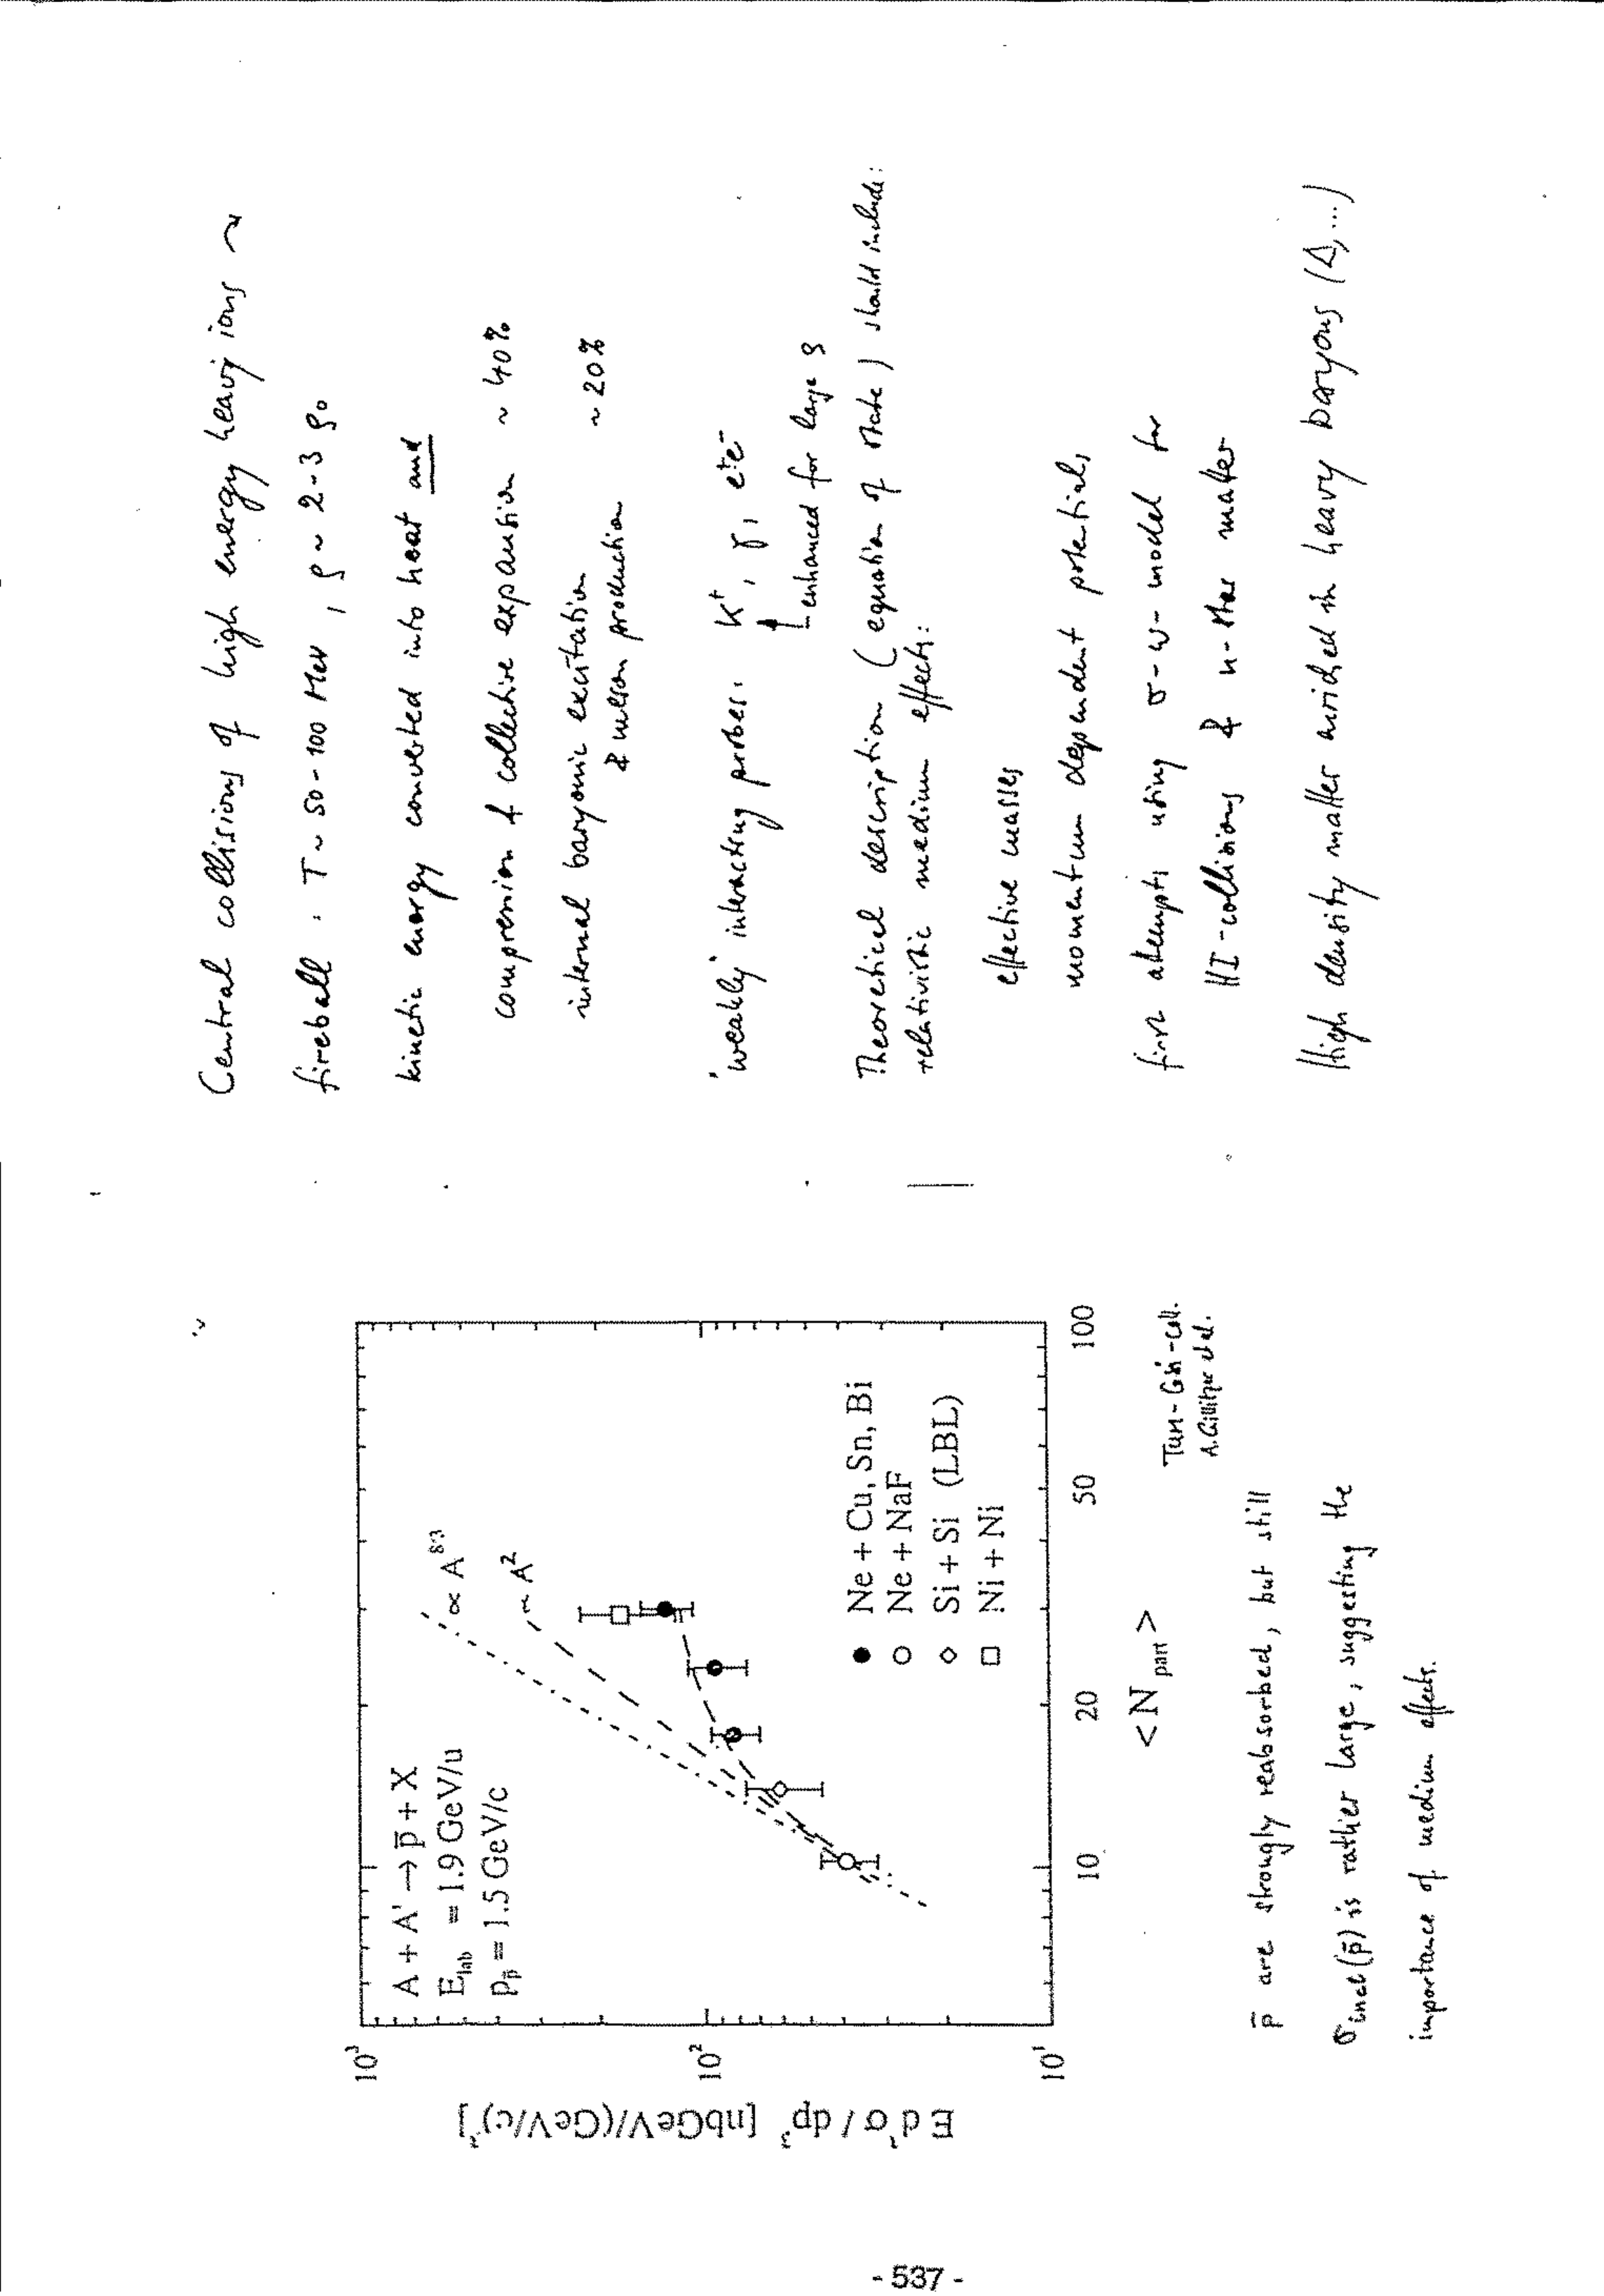 A + A' → p̄ + X
E_lab = 1.9 GeV/u
p_p̄ = 1.5 GeV/c
∝ A^8/3
~ A^2
● Ne + Cu, Sn, Bi
○ Ne + NaF
◇ Si + Si (LBL)
□ Ni + Ni
10^3
10^2
10^1
E d^3σ / dp^3 [nbGeV/(GeV/c)^3]
10 20 50 100
<N_part>
TUM-GSI-coll.
A. Gillitzer et al.
p̄ are strongly reabsorbed, but still
σ_inel(p̄) is rather large, suggesting the
importance of medium effects.
Central collisions of high energy heavy ions ↝
fireball : T ~ 50-100 MeV, ρ ~ 2-3 ρ₀
kinetic energy converted into heat and
compression & collective expansion ~ 40%
internal baryonic excitation
& meson production ~ 20%
'weakly' interacting probes: K⁺, γ, e⁺e⁻
enhanced for large ρ
Theoretical description (equation of state) should include:
relativistic medium effects:
effective masses
momentum dependent potentials
first attempts using σ-ω-model for
HI-collisions & n-star matter
High density matter enriched in heavy baryons (Δ,...)
- 537 -